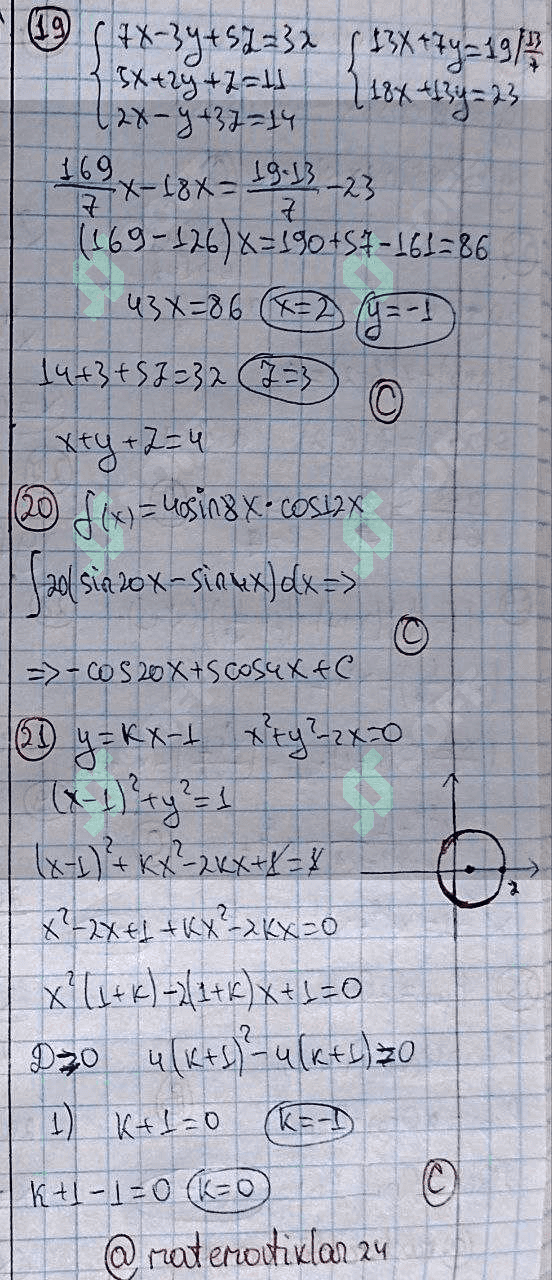 19 { 7x-3y+5z=32 { 13x+7y=19 / 13/7
5x+2y+z=11 18x+13y=23
2x-y+3z=14
169/7 x-18x= 19·13/7 -23
(169-126)x=190+57-161=86
43x=86 x=2 y=-1
14+3+5z=32 z=3
C
x+y+z=4
20 f(x)=40sin8x·cos12x
∫20(sin20x-sin4x)dx=>
C
=>-cos20x+5cos4x+C
21 y=kx-1 x²+y²-2x=0
(x-1)²+y²=1
(x-1)²+kx²-2kx+1=1
2
x²-2x+1+kx²-2kx=0
x²(1+k)-2(1+k)x+1=0
D≥0 4(k+1)²-4(k+1)≥0
1) k+1=0 k=-1
k+1-1=0 k=0 C
@matematiklar24